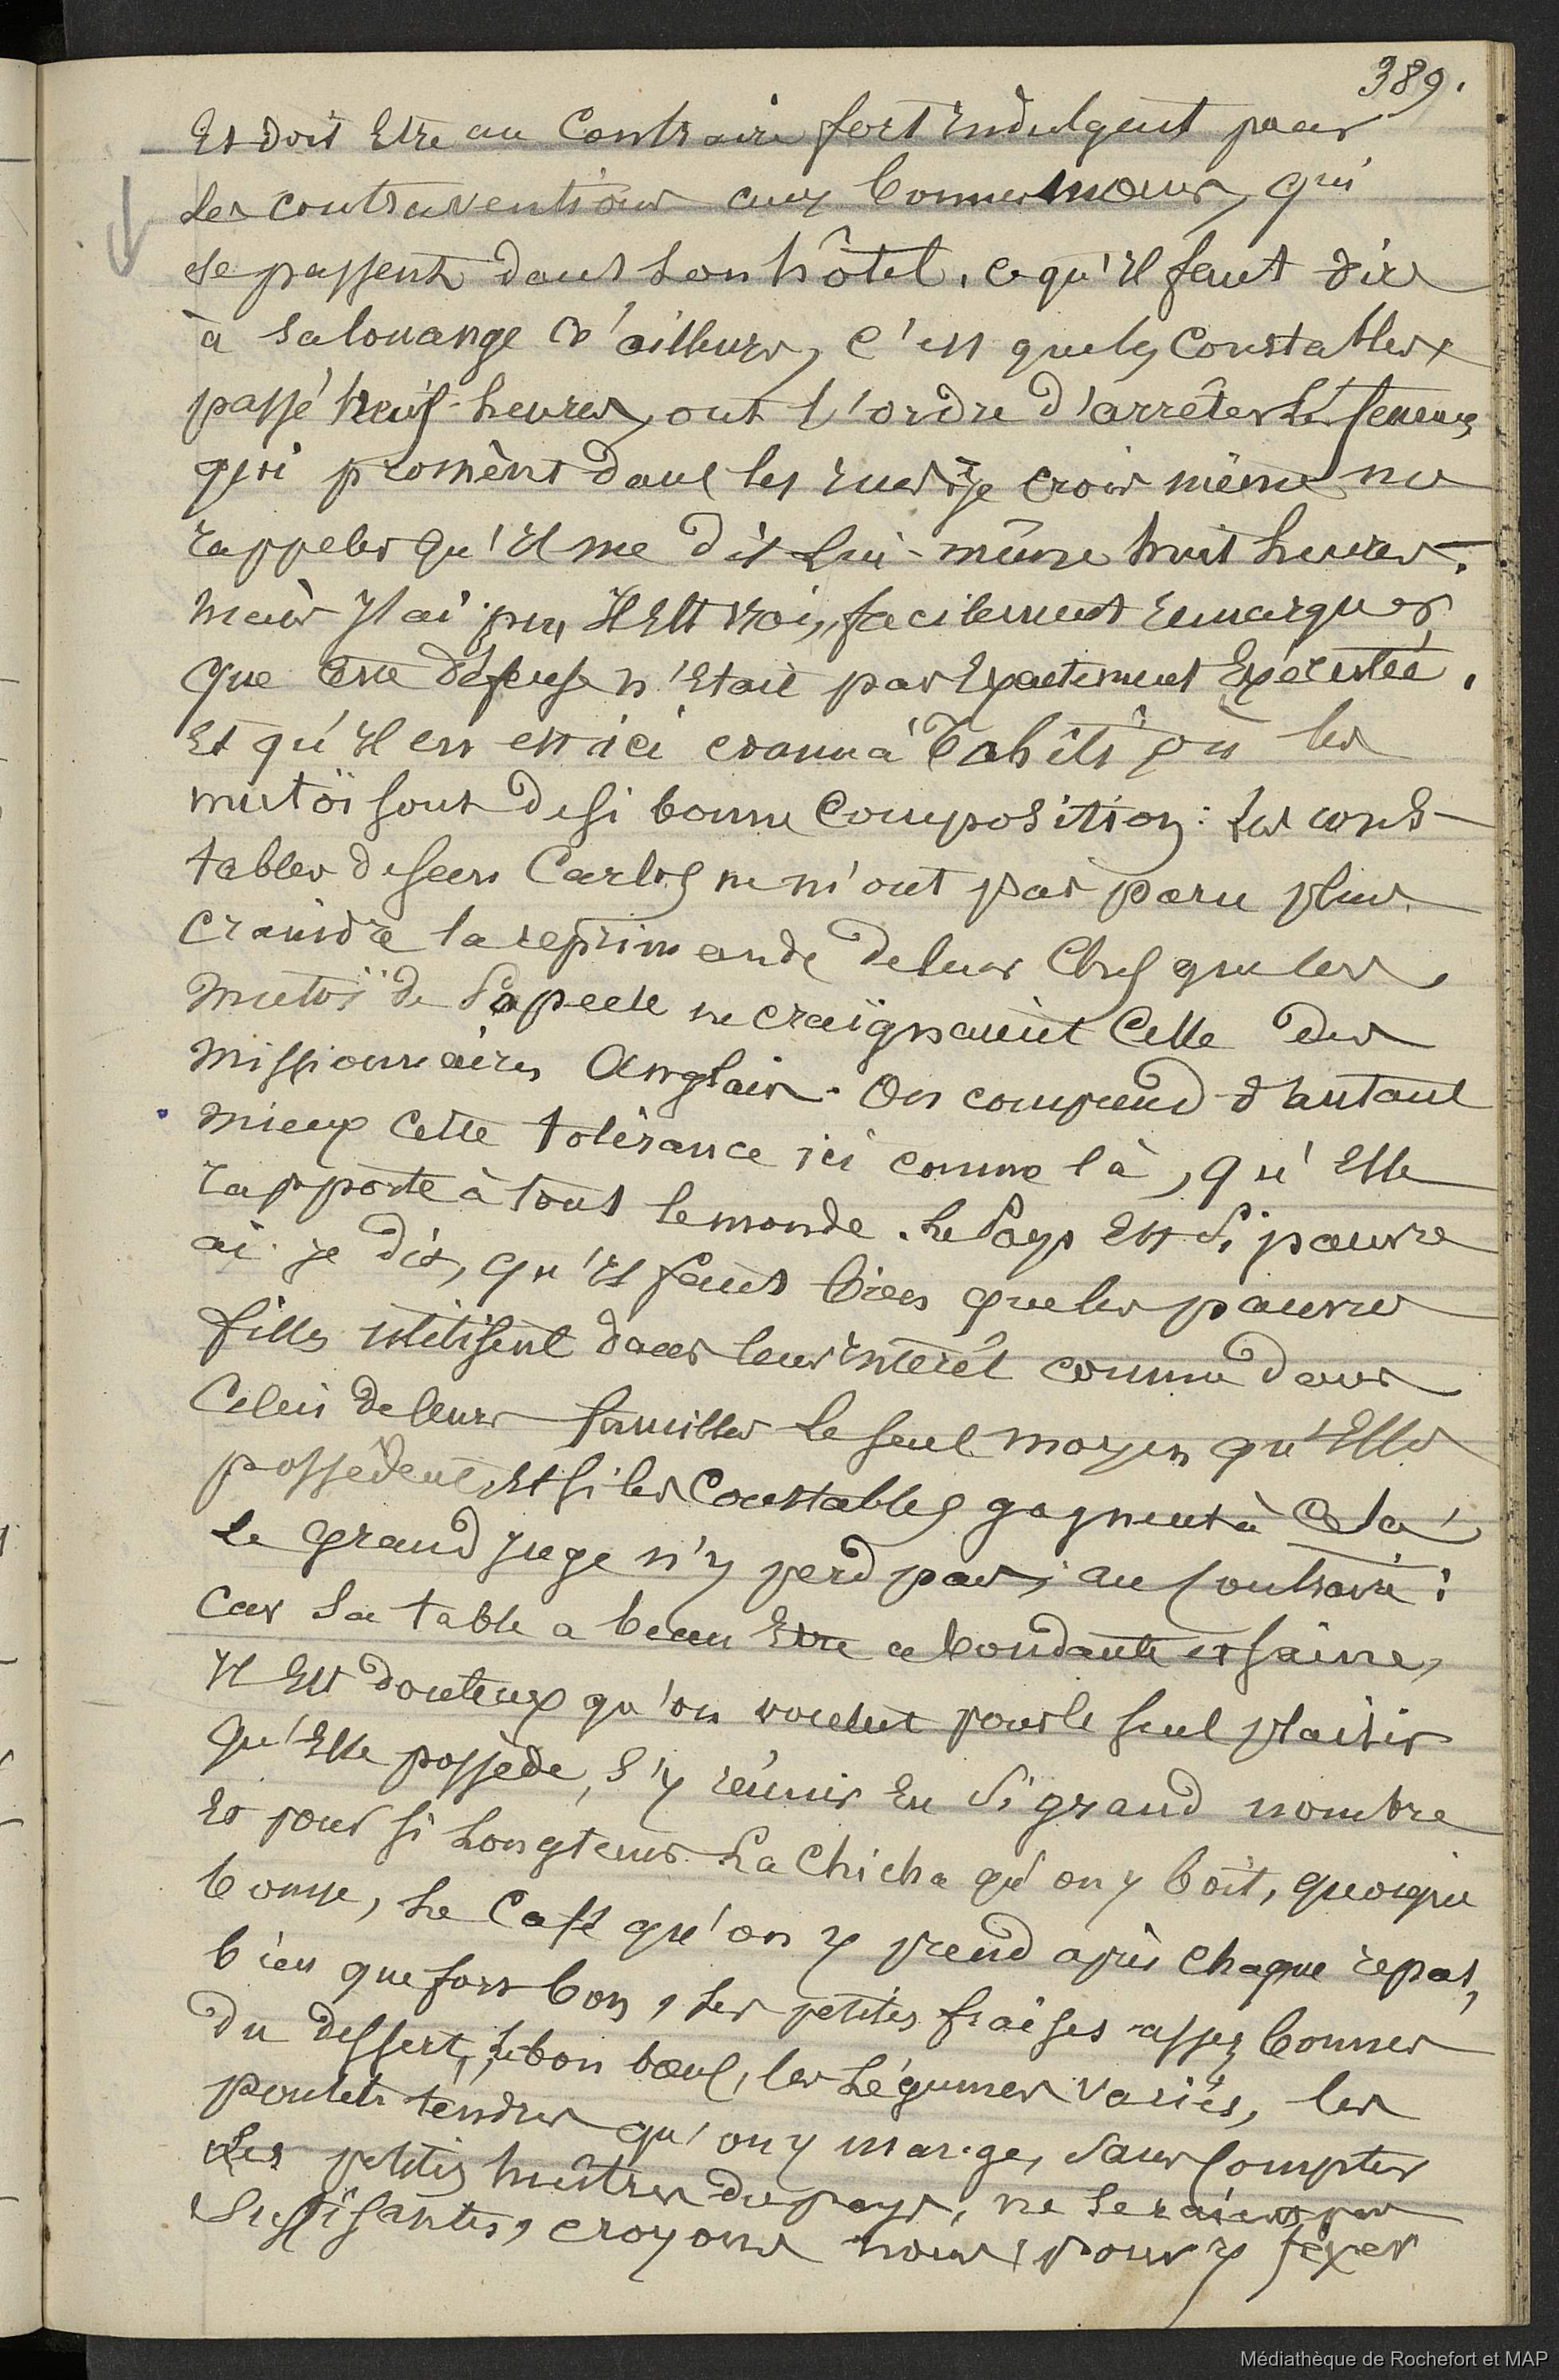 389.
Et doit Etre au Contraire fort indulgent pour
les contraventions aux bonnes mœurs, qui
se passent dans son hôtel. ce qu'il faut dire
à sa louange d'ailleurs, c'est que les constables
passé neuf heures, ont l'ordre d'arrêter les femmes
qui promènt dans les rues : Je crois même me
rappeler qu'il me dit lui-même huit heures.
mais j'ai pu, Il Est vrai, facilement remarquer,
que cette défense n'était pas Exactement Exécutée.
Et qu'il en est ici comme à Tahiti où les
mutoï sont de si bonne composition : les cons-
tables de Carlos ne m'ont pas paru plus
craindre la réprimande de leur Chef que les
mutoï de Papeete ne craignaient celle des
missionnaires Anglais. On comprend d'autant
mieux cette tolérance ici comme là, qu'Elle
rapporte à tout le monde. Le Pays Est si pauvre
ai-je dit, qu'il faut bien que les pauvres
filles utilisent dans leur intérêt comme dans
Celui de leurs familles le seul moyen qu'Elles
possèdent, Et si les Constables gagnent à cela,
le grand juge n'y perd pas, au Contraire :
Car sa table a beau Etre abondante et saine,
Il Est douteux qu'on voulut pour le seul plaisir
qu'Elle possède, s'y réunir En si grand nombre
Et pour si longtems. La Chicha qu'on y boit, quoique
bonne, le Café qu'on y prend après chaque repas,
bien que fort bon, les petites fraises assez bonnes
du dessert, le bon bœuf, les légumes variés, les
poulets tendres qu'on y mange, sans compter
les petites huîtres du pays, ne seraient pas
suffisantes, croyons nous, pour y fixer
Médiathèque de Rochefort et MAP